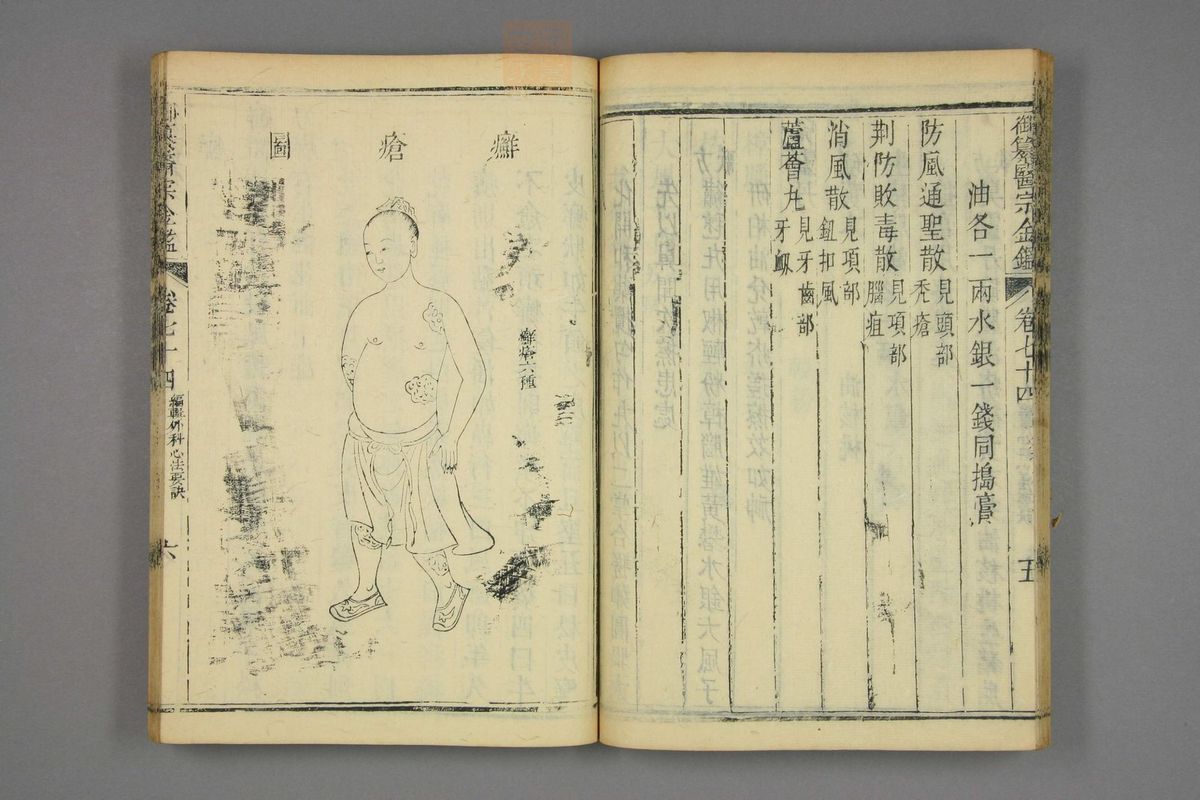 御纂醫宗金鑑
卷七十四
五
油各一兩水銀一錢同搗膏
防風通聖散見頭部
禿瘡
荆防敗毒散見項部
腦疽
消風散見項部
鈕扣風
蘆薈丸見牙齒部
牙衄
癬瘡圖
癬瘡六種
卷七十四
編輯外科心法要訣
六